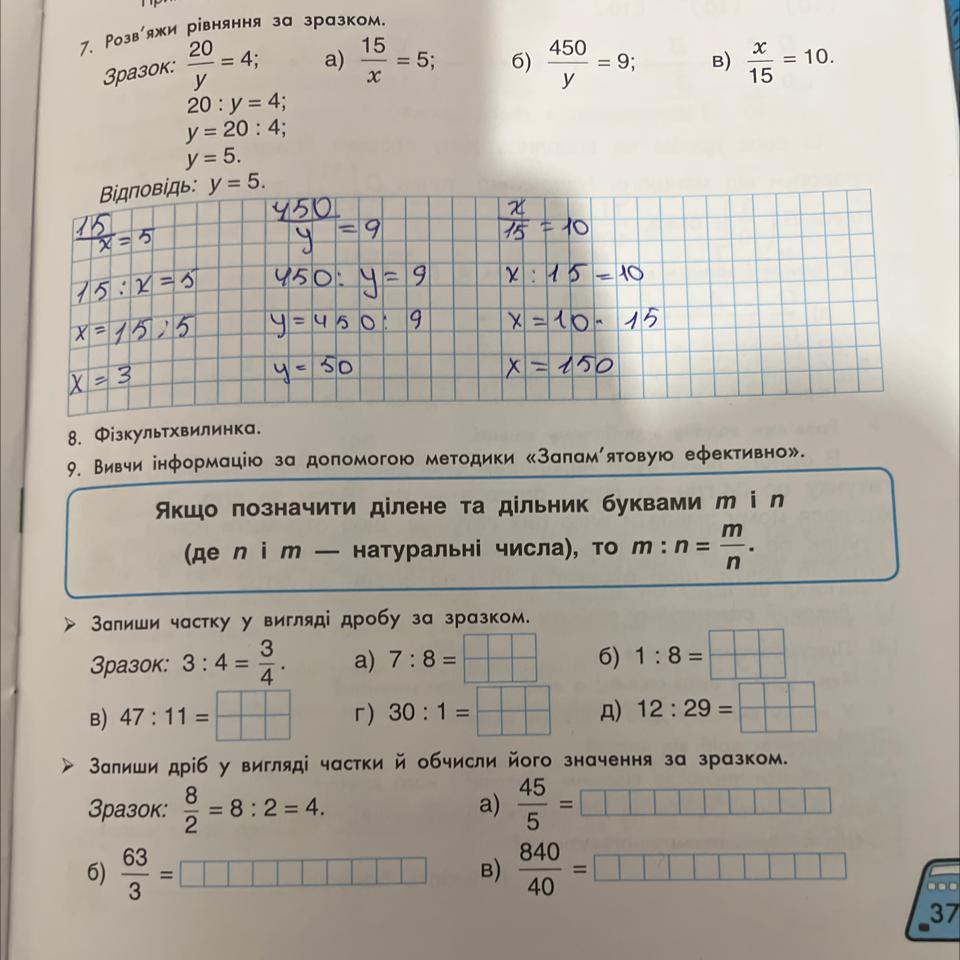 7. Розв'яжи рівняння за зразком.
Зразок: 20/y = 4; а) 15/x = 5; б) 450/y = 9; в) x/15 = 10.
20 : y = 4;
y = 20 : 4;
y = 5.
Відповідь: y = 5.
15/x = 5 450/y = 9 x/15 = 10
15 : x = 5 450 : y = 9 x : 15 = 10
x = 15 : 5 y = 450 : 9 x = 10 · 15
x = 3 y = 50 x = 150
8. Фізкультхвилинка.
9. Вивчи інформацію за допомогою методики «Запам'ятовую ефективно».
Якщо позначити ділене та дільник буквами m і n
(де n і m — натуральні числа), то m : n = m/n.
➢ Запиши частку у вигляді дробу за зразком.
Зразок: 3 : 4 = 3/4. а) 7 : 8 = б) 1 : 8 =
в) 47 : 11 = г) 30 : 1 = д) 12 : 29 =
➢ Запиши дріб у вигляді частки й обчисли його значення за зразком.
Зразок: 8/2 = 8 : 2 = 4. а) 45/5 =
б) 63/3 = в) 840/40 =
37